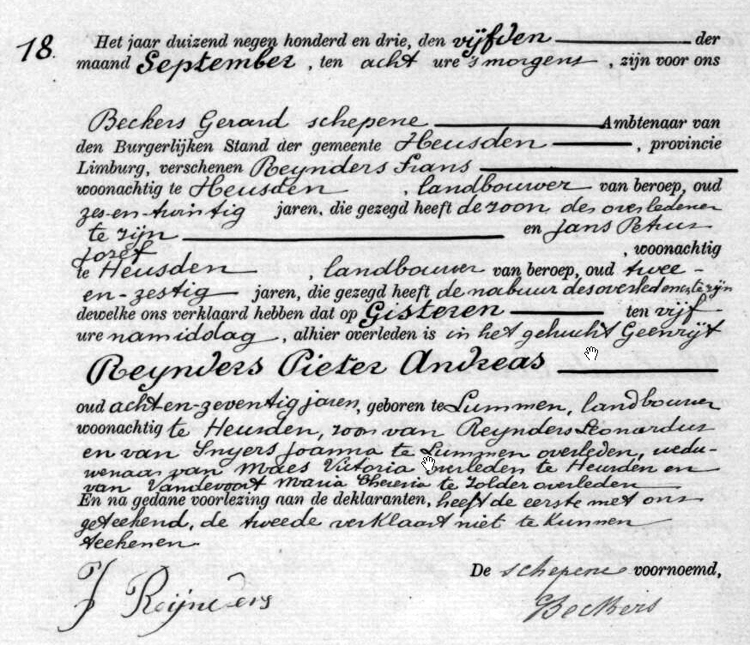 18.
Het jaar duizend negen honderd en drie, den vijfden der
maand September, ten acht ure 's morgens, zijn voor ons
Beckers Gerard schepene Ambtenaar van
den Burgerlijken Stand der gemeente Heusden, provincie
Limburg, verschenen Reynders Frans
woonachtig te Heusden, landbouwer van beroep, oud
zes-en-twintig jaren, die gezegd heeft de zoon des overledenen
te zijn en Jans Petrus
Jozef, woonachtig
te Heusden, landbouwer van beroep, oud twee-
en-zestig jaren, die gezegd heeft de nabuur des overledene te zijn
dewelke ons verklaard hebben dat op Gisteren ten vijf
ure namiddag, alhier overleden is in het gehucht Geenrijt
Reynders Pieter Andreas
oud acht-en-zeventig jaren, geboren te Lummen, landbouwer
woonachtig te Heusden, zoon van Reynders Leonardus
en van Snyers Joanna te Lummen overleden, wedu-
wenaar van Maes Victoria overleden te Heusden en
van Vandevoort Maria Theresia te Zolder overleden
En na gedane voorlezing aan de deklaranten, heeft de eerste met ons
geteekend, de tweede verklaart niet te kunnen
teekenen.
De schepene voornoemd,
F Reijnders
Beckers